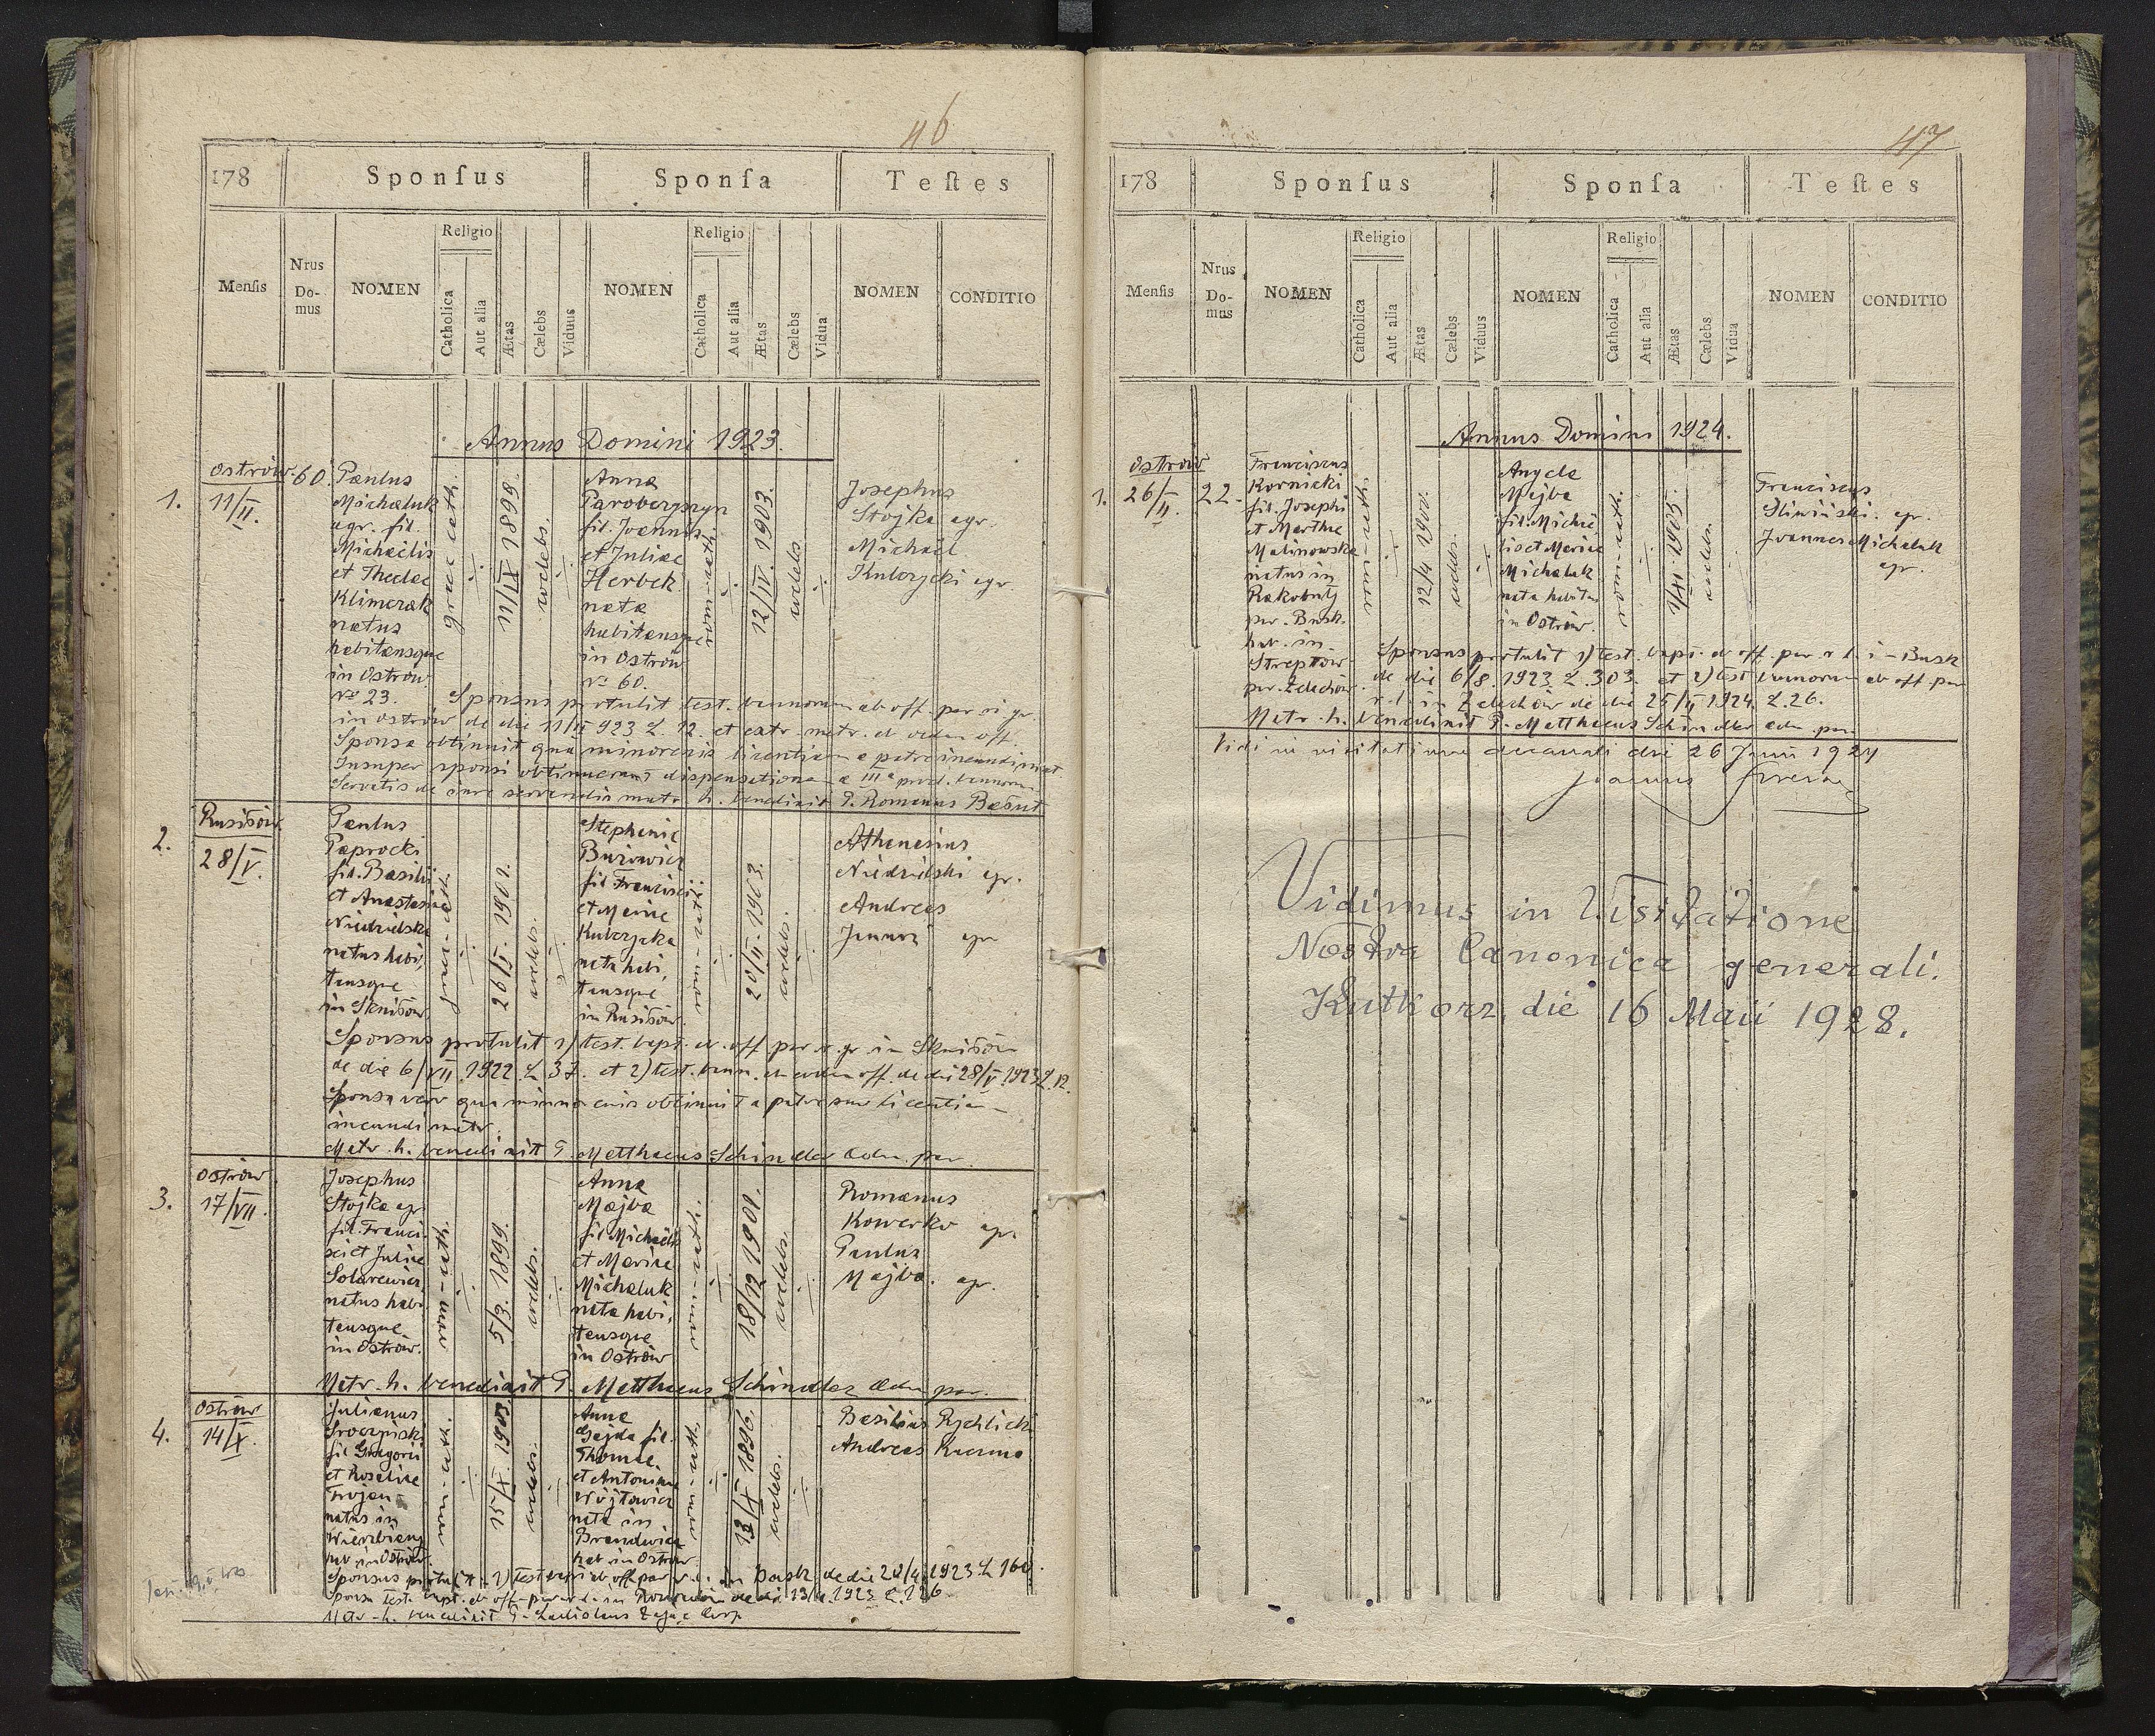 46
178 Sponſus Sponſa Teſtes
Menſis Nrus Do- mus NOMEN Religio Catholica Aut alia Ætas Cælebs Viduus NOMEN Religio Catholica Aut alia Ætas Cælebs Vidua NOMEN CONDITIO
Annus Domini 1923.
1.
Ostrów
11/II.
60
Paulus
Michaluk
agr. fil.
Michaelis
et Theclae
Klimczak
natus
habitansque
in Ostrów
No 23.
graec. cath.
11/XI 1898
coelebs.
Anna
fil. Joannis
et Juliae
Herbek
nata
habitansque
in Ostrów
No 60.
rom-cath.
12/IV. 1903.
coelebs.
Josephus
Stojka agr.
Michael
Kubrycki agr.
Sponsus protulit test. bannorum ab off. par. r. gr.
in Ostrów de die 11/II 923 L. 12. et extr. metr. ab eodem off.
Sponsa obtinuit qua minorenis licentiam a patre ineundi mat.
Insuper sponsi obtinuerunt dispensationem a IIIa procl. bannorum
Servatis de iure servandis matr. h. benedixit P. Romanus
2.
Rusiłów
28/V.
Paulus
Paprocki
fil. Basilii
et Anastasiae
Niedzielska
natus habi,
tansque
in Skniłów
26/II. 1901.
coelebs.
Stephania
Burowicz
fil. Francisci
et Mariae
nata habi,
tansque
in Rusiłów.
rom-cath.
20/II. 1903.
coelebs.
Athanasius
Niedzielski agr.
Andreas
agr
Sponsus protulit 1) test. bapt. ab off. par. r. gr. in Skniłów
de die 6/VII. 1922 L. 37. et 2) test. bann. ab eodem off. de die 28/V. 1923 L. 12.
Sponsa vero qua minorenis obtinuit a patre suo licentiam
ineundi matr.
Matr. h. benedixit P. Matthaeus Schindler adm. par.
3.
Ostrów
17/VII.
Josephus
Stojka agr.
fil. Franci,
sci et Juliae
Solarewicz
natus habi,
tansque
in Ostrów.
rom-cath.
5/3. 1899.
coelebs.
Anna
Majba
fil. Michaelis
et Mariae
Michaluk
nata habi,
tansque
in Ostrów
rom-cath.
18/12 1901.
coelebs.
Romanus
Kowerko agr.
Paulus
Majba. agr.
Matr. h. benedixit P. Matthaeus Schindler adm. par.
4.
Ostrów
14/X.
Julianus
fil. Gregorii
et Rosaliae
Trojan
natus in
hab. in Ostrów.
rom-cath.
15/X. 1903.
coelebs.
Anna
Gajda fil.
Thomae
et Antoninae
Wójtowicz
nata in
Brandwica
hab. in Ostrów.
rom-cath.
13/X 1896.
coelebs.
Basilius Rychlicki
Andreas Kuzma
Sponsus protulit 1) test. bapt. ab off. par. r. l. in Busk de die 20/9 1923 L. 160.
Sponsa test. bapt. ab off. par. r. l. in de die 13/9. 1923 L. 126
Matr. h. benedixit P. Ladislaus Zając Coop.
47
178 Sponſus Sponſa Teſtes
Menſis Nrus Do- mus NOMEN Religio Catholica Aut alia Ætas Cælebs Viduus NOMEN Religio Catholica Aut alia Ætas Cælebs Vidua NOMEN CONDITIO
Annus Domini 1924.
1.
Ostrów
26/II.
22.
Franciscus
Kornicki
fil. Josephi
et Marthae
Malinowska
natus in
Rakobuty
par. Busk.
hab. in
Streptów
par. Żelechów.
12/4 1900.
coelebs.
Angela
Majba
fil. Michae
lis et Mariae
Michaluk
nata habitans
in Ostrów.
rom-cath.
1905.
coelebs.
Franciscus
Śliwiński. agr.
Joannes Michaluk
agr.
Sponsus protulit 1) test. bapt. ab off. par. r. l. in Busk
de die 6/8. 1923 L. 303. et 2) test. bannorum ab off. par
r. l. in Żelechów de die 25/II 1924. L. 26.
Matr. h. benedixit P. Matthaeus Schindler adm. par.
Vidi in visitatione decanali die 26 Junii 1924
Joannes
Vidimus in Visitatione
Nostra Canonica generali.
Kutkorz, die 16 Maii 1928.